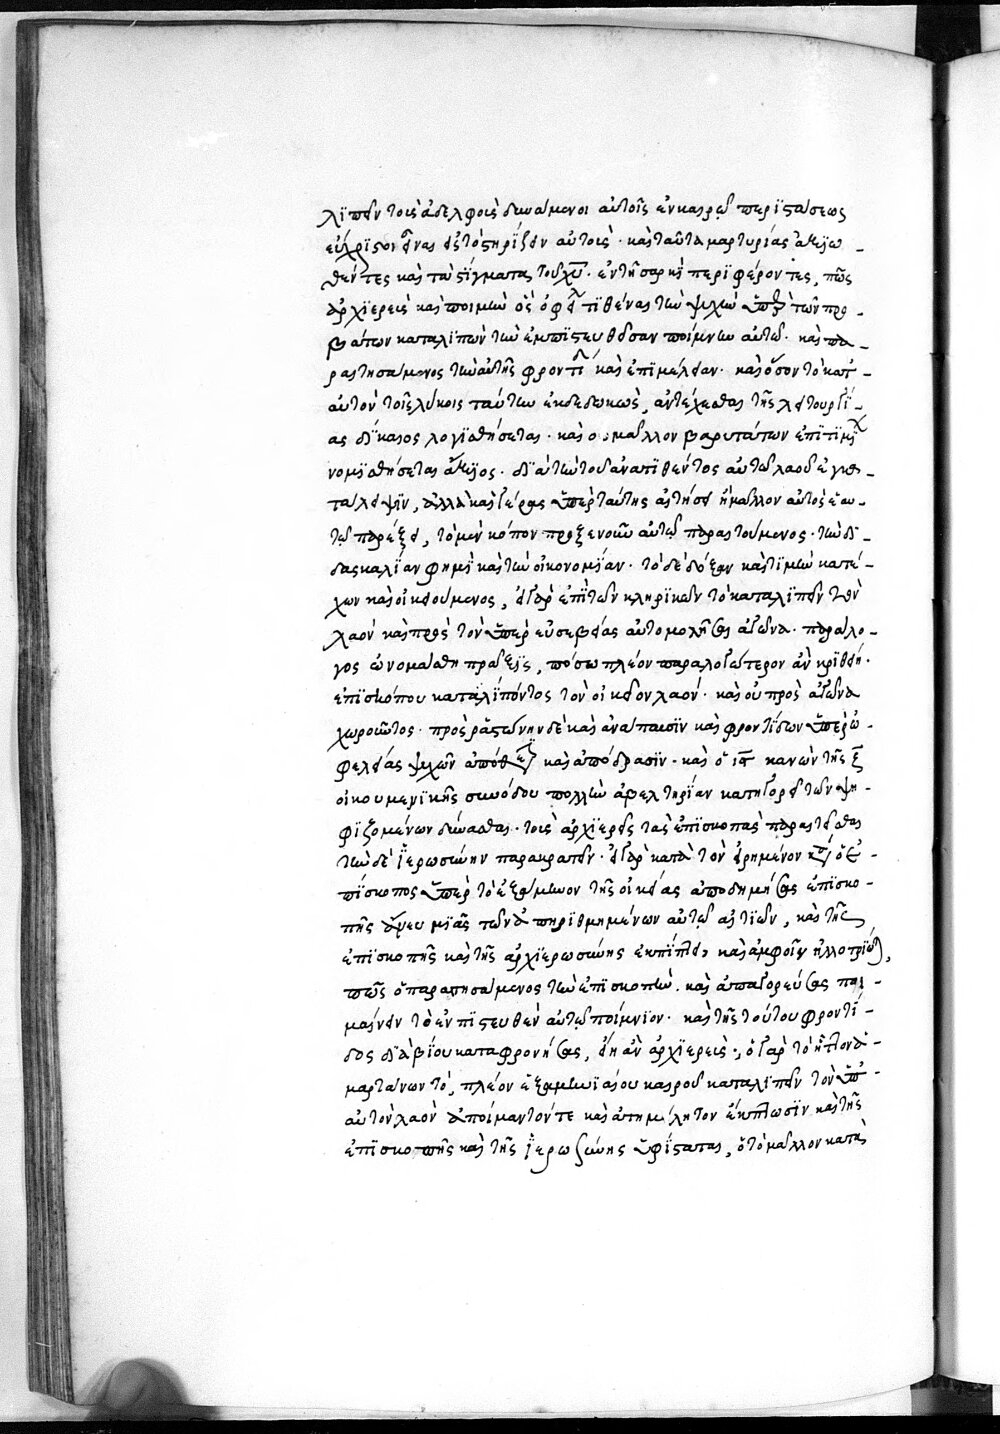 λϊπεῖν τοῖς ἀδελφοῖς δυνάμενοι αὐτοῖς ἐν καιρῷ περιστάσεως
εὔχρηστοι εἶναι εἰς τὸ στηρίζειν αὐτοὺς. καὶ ταῦτα μαρτυρίας ἀξιω-
θέντες καὶ τὰ στίγματα τοῦ χυ. ἐν τῇ σαρκὶ περιφέροντες, πῶς
ἀρχιερεὺς καὶ ποιμὴν ὃς ὀφείλει τιθέναι τὴν ψυχὴν ὑπὲρ τῶν προ-
βάτων καταλιπὼν τὴν ἐμπιστευθεῖσαν ποίμνην αὐτῷ. καὶ πα-
ραιτησάμενος τὴν αὐτῆς φροντίδα καὶ ἐπιμέλειαν. καὶ ὅσον τὸ κατ'
αὐτὸν τοῖς λύκοις ταύτην ἐκδεδωκὼς, ἀντέχεσθαι τῆς λειτουργί-
ας δίκαιος λογισθήσεται. καὶ μᾶλλον βαρυτάτων ἐπιτιμί
νομισθήσεται ἄξιος. διὰ τὴν τοῦ ἀνατιθέντος αὐτῷ λαοῦ ἐγκα-
τάλειψιν, ἀλλὰ καὶ γέρας ὑπὲρ ταύτης αἰτήσει ἢ μᾶλλον αὐτὸς ἑαυ-
τῷ παρέξει, τὸ μὲν κόπον προξενοῦν αὐτῷ παραιτούμενος. τὴν δι-
δασκαλίαν φημὶ καὶ τὴν οἰκονομίαν. τὸ δὲ δόξαν καὶ τιμὴν κατέ-
χων καὶ οἰκειούμενος, εἰ γὰρ ἐπὶ τῶν κληρικῶν τὸ καταλιπεῖν τὸν
λαὸν καὶ πρὸς τὸν ὑπὲρ εὐσεβείας αὐτομολῆσαι ἀγῶνα. παράλο-
γος ὠνομάσθη πρᾶξις, πόσω πλέον παραλογώτερον ἂν κριθείη.
ἐπισκόπου καταλιπόντος τὸν οἰκεῖον λαόν. καὶ οὐ πρὸς ἀγῶνα
χωροῦντος. πρὸς ῥαστώνην δὲ καὶ ἀνάπαυσιν καὶ φροντίδων ὑπὲρ ὠ-
φελείας ψυχῶν ἀπόθεσιν καὶ ἀπόδρασιν. καὶ ὁ ις κανὼν τῆς ξ
οἰκουμενικῆς συνόδου πολλὴν ἀβελτηρίαν κατηγορεῖ τῶν ψη-
φιζομένων δύνασθαι. τοὺς ἀρχιερεῖς τὰς ἐπισκοπὰς παραιτεῖσθαι
τὴν δὲ ἱερωσύνην παρακρατεῖν. εἰ γὰρ κατὰ τὸν εἰρημένον ὁ ἐ-
πίσκοπος ὑπὲρ τὸ ἑξάμηνον τῆς οἰκείας ἀποδημήσας ἐπισκο-
πῆς ἄνευ μιᾶς τῶν ἀπηριθμημένων αὐτῷ αἰτιῶν, καὶ τῆς
ἐπισκοπῆς καὶ τῆς ἀρχιερωσύνης ἐκπίπτει, καὶ ἀμφοῖν ἠλλοτρίωται,
πῶς ὁ παραιτησάμενος τὴν ἐπισκοπὴν. καὶ ἀπαγορεύσας ποι-
μαίνειν τὸ ἐμπιστευθὲν αὐτῷ ποίμνιον. καὶ τῆς τούτου φροντί-
δος διὰ βίου καταφρονήσας, εἴη ἂν ἀρχιερεὺς., ὁ γὰρ τὸ ἧττον ἁ-
μαρτάνων τὸ, πλέον ἑξαμηνιαίου καιροῦ καταλιπεῖν τὸν ὑπ'
αὐτὸν λαὸν ἀποίμαντόν τε καὶ ἀτημέλητον ἔκπτωσιν καὶ τῆς
ἐπισκοπῆς καὶ τῆς ἱερωσύνης ὑφίσταται, ὁ τὸ μᾶλλον κατὰ